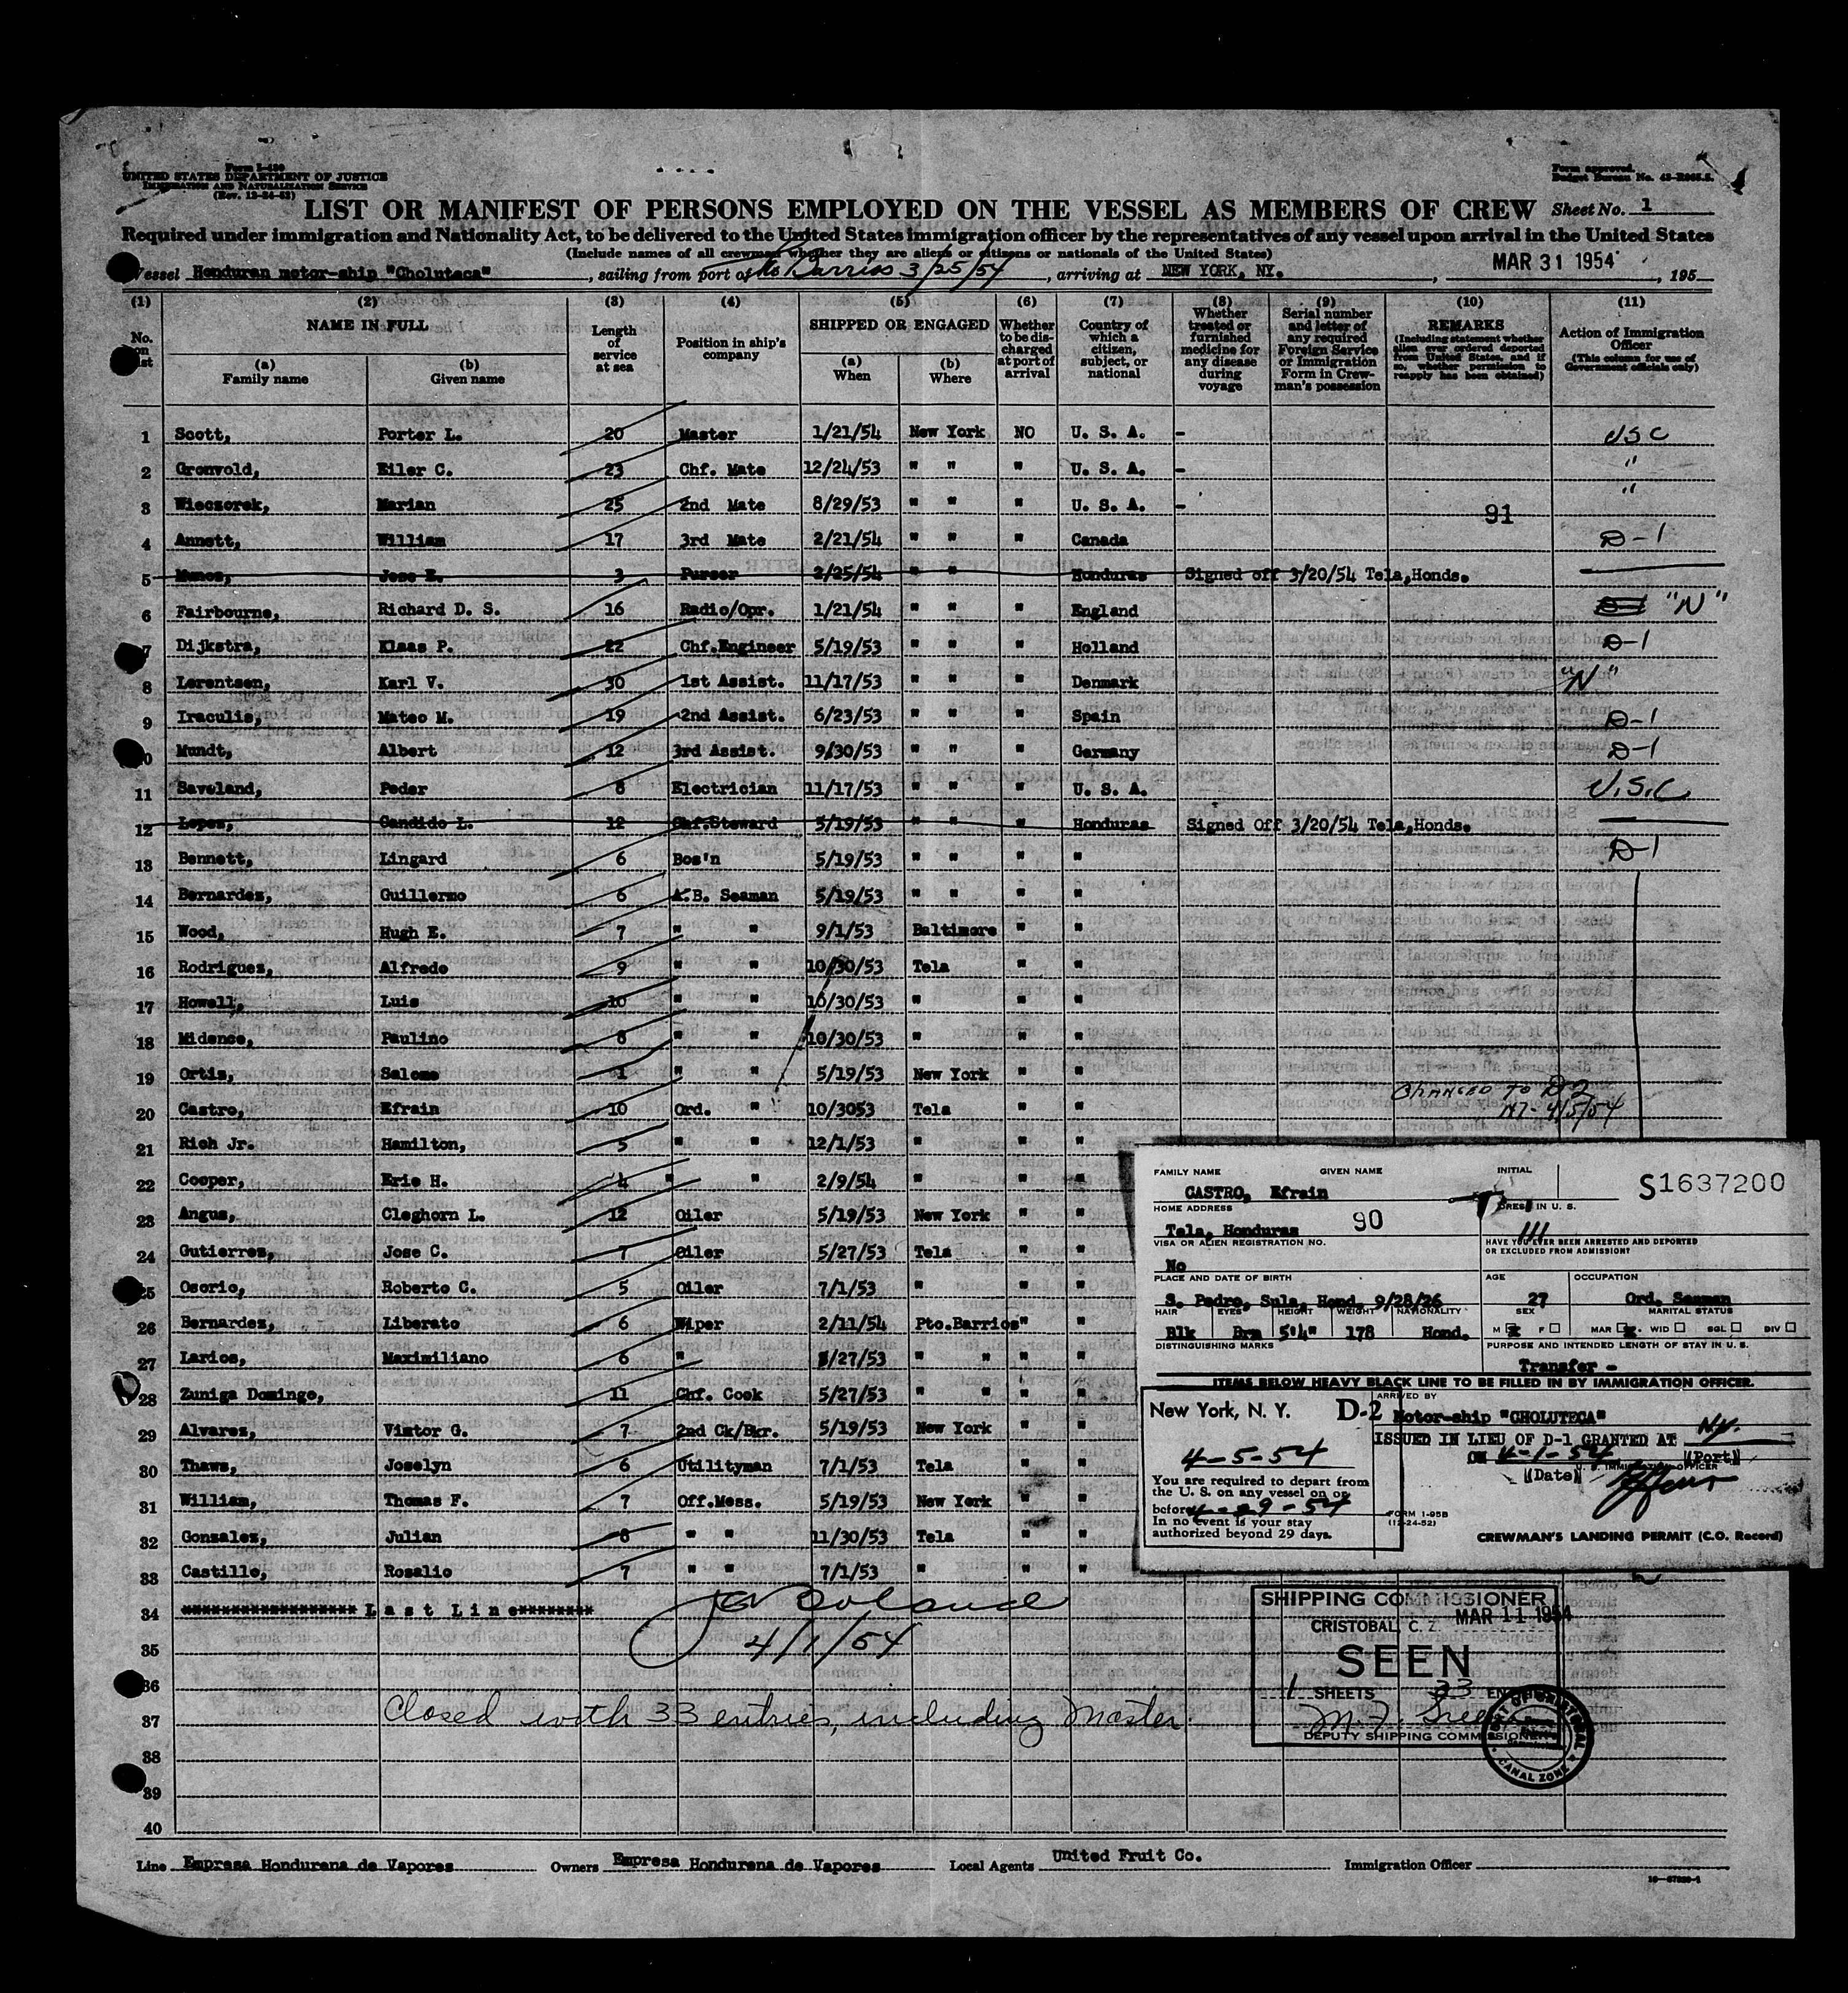 Form I-489
UNITED STATES DEPARTMENT OF JUSTICE
IMMIGRATION AND NATURALIZATION SERVICE
(Rev. 12-24-52)
Form approved.
Budget Bureau No. 43-R065.5.
LIST OR MANIFEST OF PERSONS EMPLOYED ON THE VESSEL AS MEMBERS OF CREW Sheet No. 1
Required under immigration and Nationality Act, to be delivered to the United States immigration officer by the representatives of any vessel upon arrival in the United States
(Include names of all crewmen whether they are aliens or citizens or nationals of the United States)
Vessel Honduran motor-ship "Choluteca", sailing from port of Pto Barrios 3/25/54, arriving at NEW YORK, NY., MAR 31 1954, 195
(1) (2) (3) (4) (5) (6) (7) (8) (9) (10) (11)
No. on list
NAME IN FULL
(a) Family name
(b) Given name
Length of service at sea
Position in ship's company
SHIPPED OR ENGAGED
(a) When
(b) Where
Whether to be discharged at port of arrival
Country of which a citizen, subject, or national
Whether treated or furnished medicine for any disease during voyage
Serial number and letter of any required Foreign Service or Immigration Form in Crewman's possession
REMARKS
(Including statement whether alien ever ordered deported from United States, and if so, whether permission to reapply has been obtained)
Action of Immigration Officer
(This column for use of Government officials only)
1 Scott, Porter L. 20 Master 1/21/54 New York NO U. S. A. - USC
2 Gronvold, Eiler C. 23 Chf. Mate 12/24/53 " " " U. S. A. - "
3 Wieczorek, Marian 25 2nd Mate 8/29/53 " " " U. S. A. - "
91
4 Annett, William 17 3rd Mate 2/21/54 " " " Canada D-1
5 Munoz, Jose E. 3 Purser 2/25/54 Honduras Signed off 3/20/54 Tela, Honds.
6 Fairbourne, Richard D. S. 16 Radio/Opr. 1/21/54 " " " England "N"
7 Dijkstra, Klaas P. 22 Chf.Engineer 5/19/53 " " " Holland D-1
8 Lorentsen, Karl V. 30 1st Assist. 11/17/53 " " " Denmark "N"
9 Iraculis, Mateo M. 19 2nd Assist. 6/23/53 " " " Spain D-1
10 Mundt, Albert 12 3rd Assist. 9/30/53 " " " Germany D-1
11 Saveland, Peder 8 Electrician 11/17/53 " " " U. S. A. U.S.C
12 Lopez, Candido L. 12 Chf.Steward 5/19/53 " " " Honduras Signed Off 3/20/54 Tela, Honds.
13 Bennett, Lingard 6 Bos'n 5/19/53 " " " " D-1
14 Bernardez, Guillermo 6 A.B. Seaman 5/19/53 " " " "
15 Wood, Hugh E. 7 " " 9/1/53 Baltimore " "
16 Rodriguez, Alfredo 9 " " 10/30/53 Tela " "
17 Howell, Luis 10 " " 10/30/53 " " "
18 Midence, Paulino 8 " " 10/30/53 " " "
19 Ortiz, Salome 1 " " 5/19/53 New York " "
20 Castro, Efrain 10 Ord. " 10/3053 Tela " " CHANGED TO D2
NY- 4/5/54
21 Rich Jr. Hamilton, 5 " " 12/1/53 " " "
22 Cooper, Eric H. 4 " " 2/9/54 " " "
23 Angus, Cleghorn L. 12 Oiler 5/19/53 New York " "
24 Gutierrez, Jose C. 7 Oiler 5/27/53 Tela " "
25 Osorio, Roberto C. 5 Oiler 7/1/53 " " "
26 Bernardez, Liberato 6 Wiper 2/11/54 Pto.Barrios " "
27 Larios, Maximiliano 6 " 5/27/53 " " " "
28 Zuniga Domingo, 11 Chf. Cook 5/27/53 " " " "
29 Alvarez, Victor G. 7 2nd Ck/Bkr. 5/19/53 New York " "
30 Thaws, Joselyn 6 Utilityman 7/1/53 Tela " "
31 William, Thomas F. 7 Off.Mess. 5/19/53 New York " "
32 Gonzalez, Julian 8 " " 11/30/53 Tela " "
33 Castillo, Rosalio 7 " " 7/1/53 " " "
34 ****************** L a s t L i n e********
35 4/1/54
36
37 Closed with 33 entries, including Master.
38
39
40
FAMILY NAME GIVEN NAME INITIAL
CASTRO, Efrain
S1637200
HOME ADDRESS
Tela, Honduras
90
ADDRESS IN U. S.
VISA OR ALIEN REGISTRATION NO.
No
HAVE YOU EVER BEEN ARRESTED AND DEPORTED OR EXCLUDED FROM ADMISSION?
PLACE AND DATE OF BIRTH
S. Pedro, Sula, Hond. 9/28/26
AGE OCCUPATION
27 Ord. Seaman
HAIR EYES HEIGHT WEIGHT NATIONALITY
Blk Brn 5'4" 178 Hond.
SEX MARITAL STATUS
M x F MAR x WID SGL DIV
DISTINGUISHING MARKS
PURPOSE AND INTENDED LENGTH OF STAY IN U. S.
Transfer -
ITEMS BELOW HEAVY BLACK LINE TO BE FILLED IN BY IMMIGRATION OFFICER.
New York, N. Y. D-2
4-5-54
You are required to depart from the U. S. on any vessel on or before 4-29-54
In no event is your stay authorized beyond 29 days.
ARRIVED BY
Motor-ship "CHOLUTECA"
ISSUED IN LIEU OF D-1 GRANTED AT NY.
ON 4-1-54 (Port)
(Date)
U. S. IMMIGRATION OFFICER
FORM I-95B
(12-24-52)
CREWMAN'S LANDING PERMIT (C.O. Record)
SHIPPING COMMISSIONER
MAR 11 1954
CRISTOBAL, C. Z.
SEEN
1 SHEETS 33
DEPUTY SHIPPING COMMISSIONER
PORT OF CRISTOBAL
CANAL ZONE
Line Empresa Hondurena de Vapores Owners Empresa Hondurena de Vapores Local Agents United Fruit Co. Immigration Officer